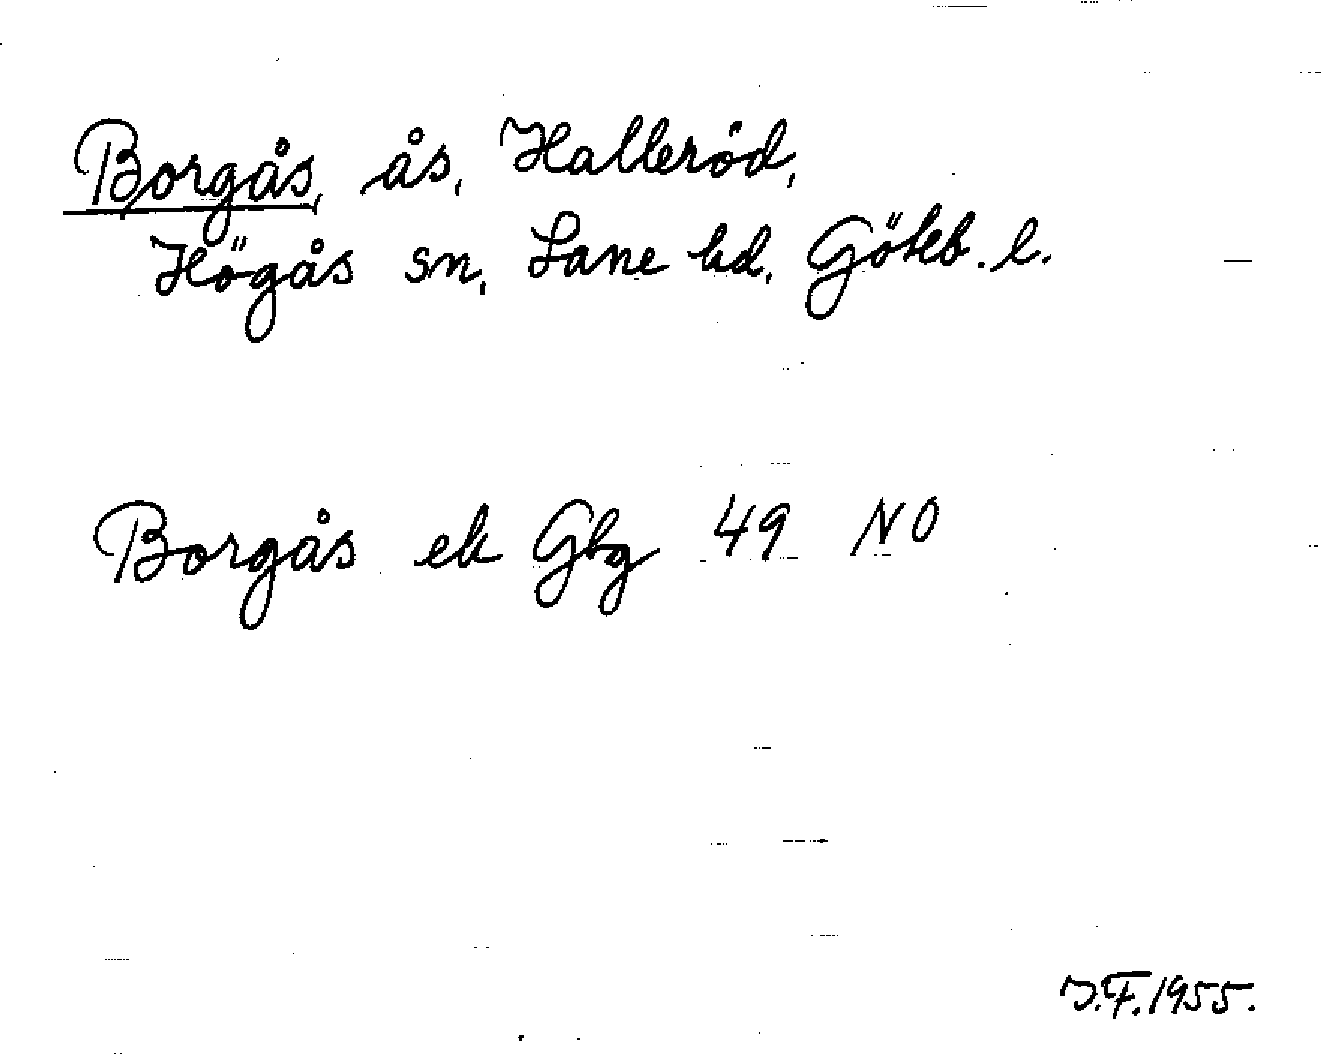 Borgås, ås, Halleröd,
Högås sn, Lane hd, Göteb. l.
Borgås ek Gbg 49 NO
J.F. 1955.